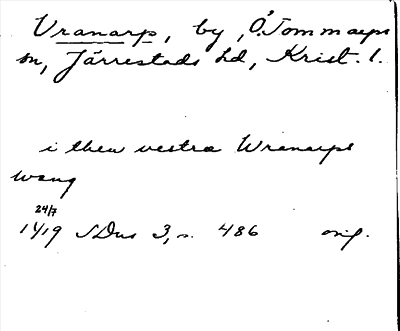 Vranarp, by, Ö. Tommarps
sn, Järrestads hd, Krist. l.
i then vestra Wranarps
wang
24/7
1419 SDns 3, s. 486 orig.